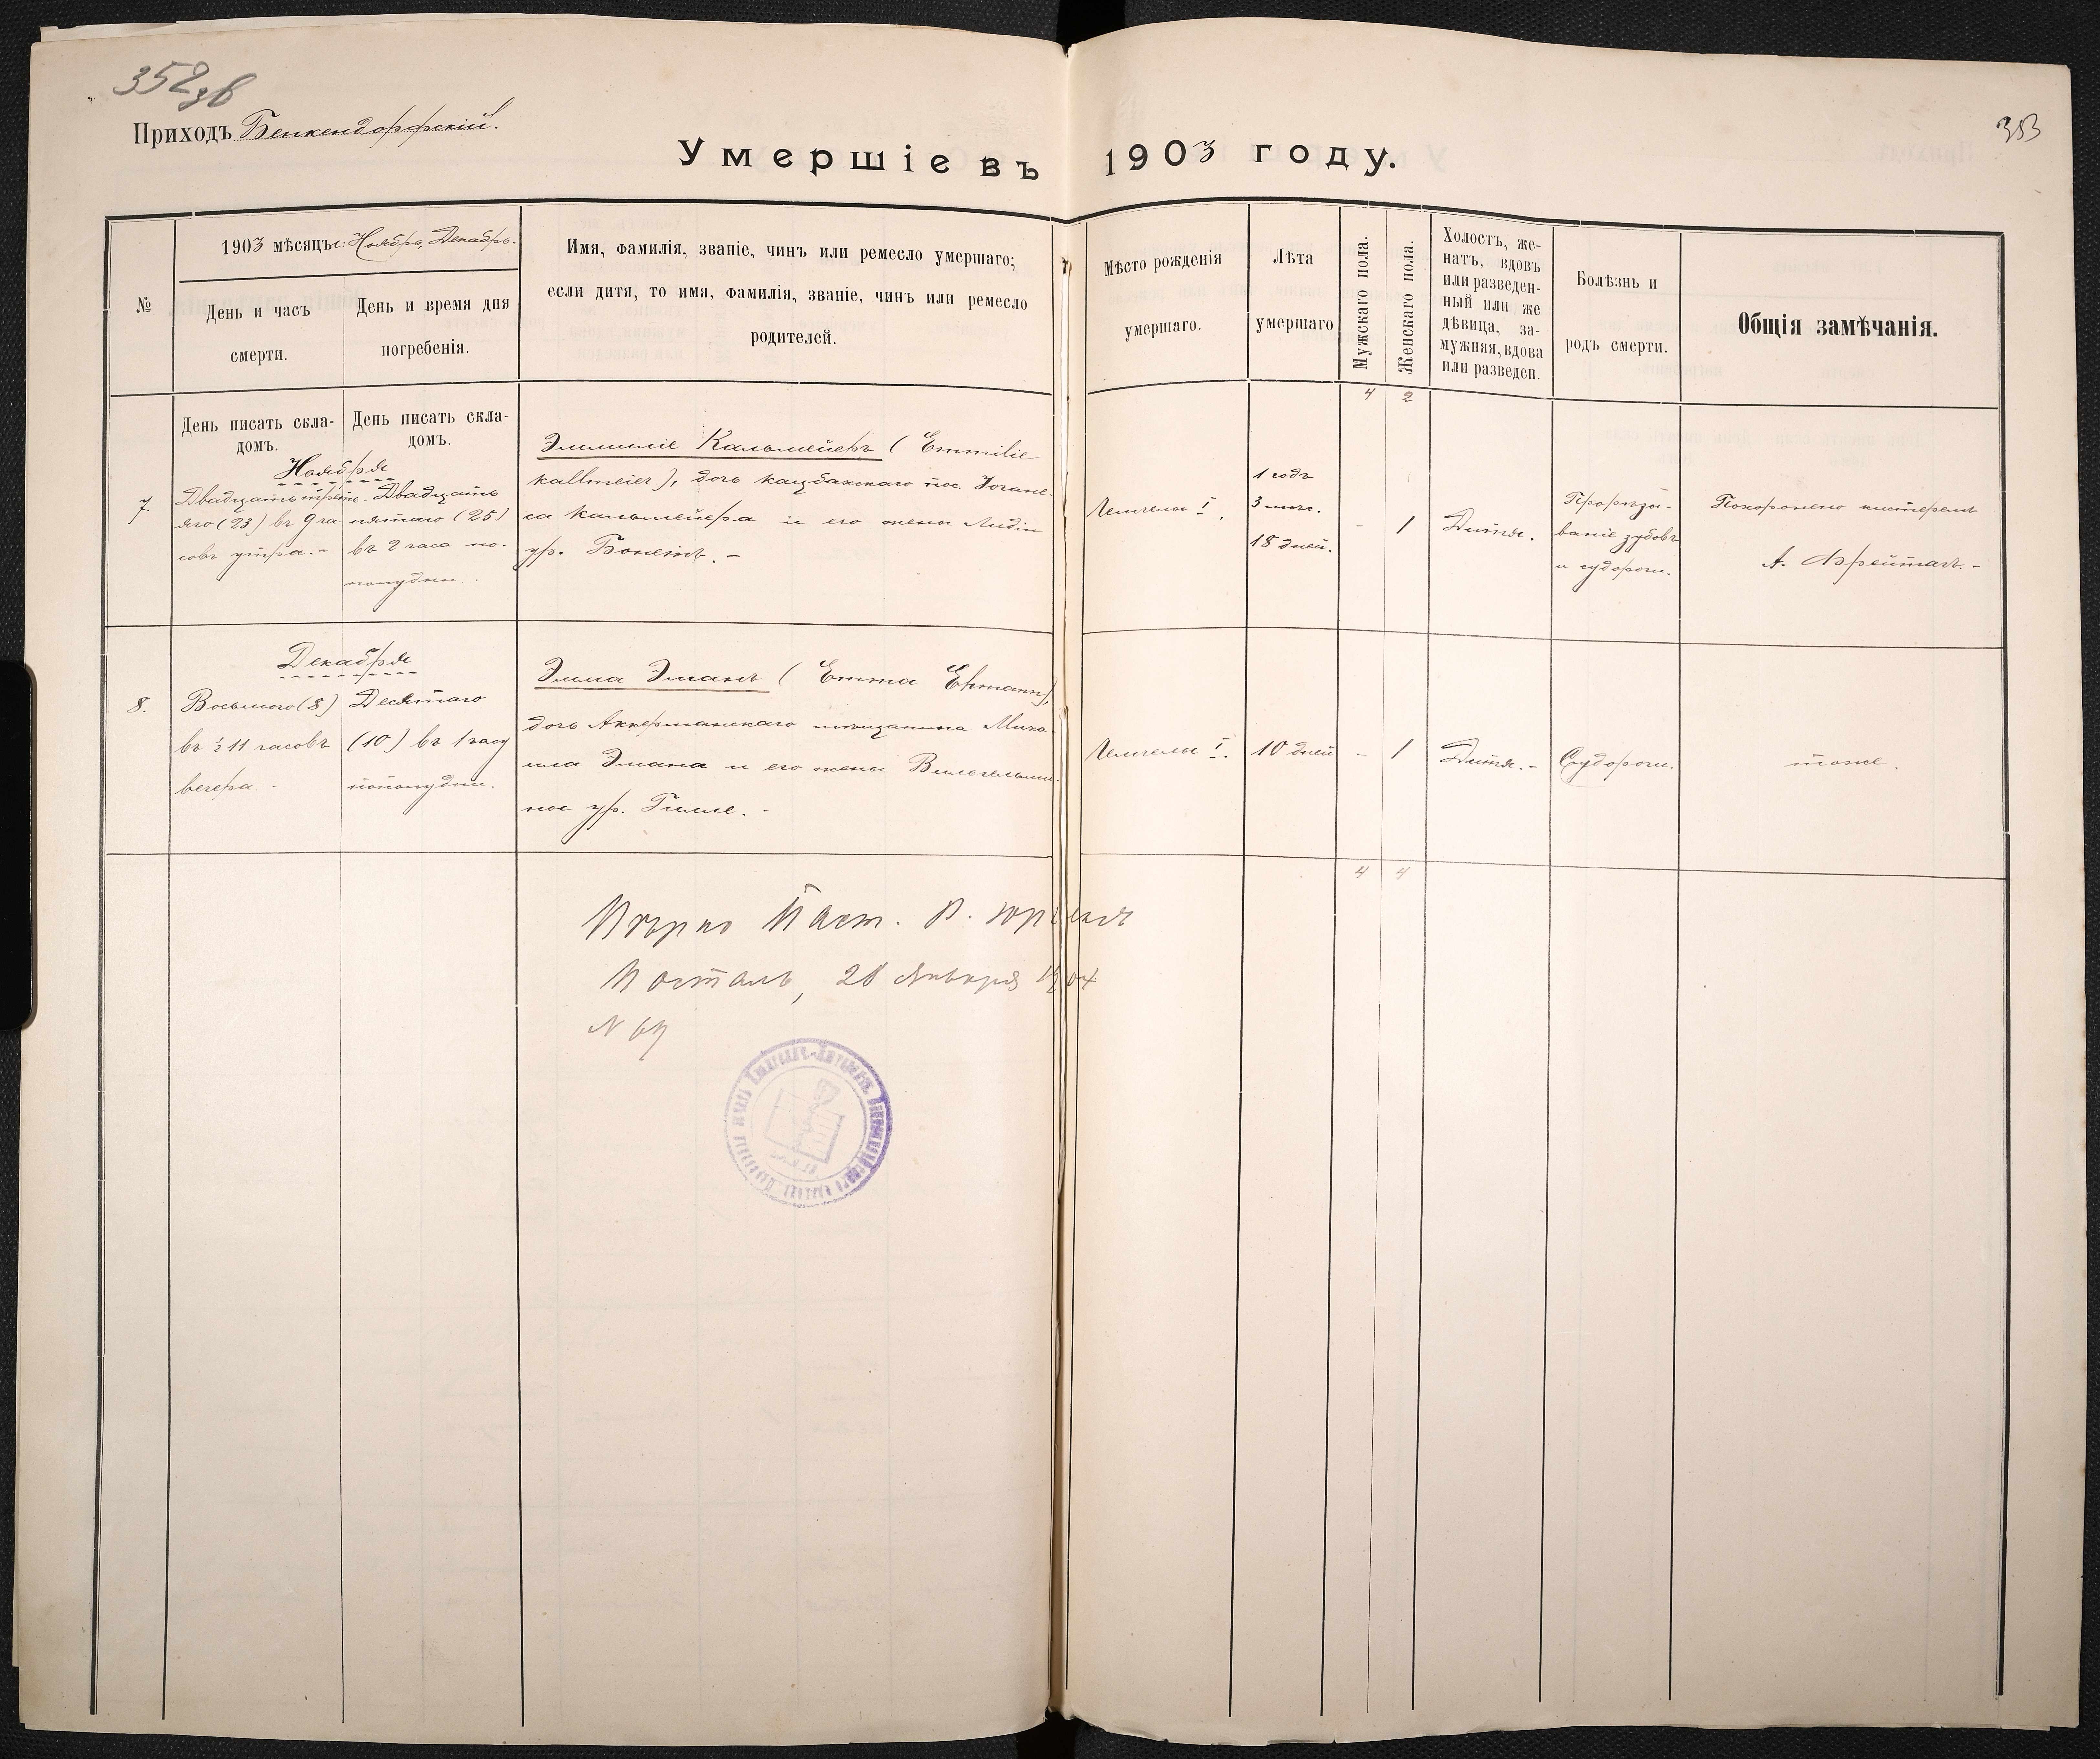 352 зв
353
Приходъ Бенкендорфскій.
Умершіе въ 1903 году.
№
1903 мѣсяцъ: Ноябрь, Декабрь.
День и часъ
смерти.
День и время дня
погребенія.
Имя, фамилія, званіе, чинъ или ремесло умершаго;
если дитя, то имя, фамилія, званіе, чинъ или ремесло
родителей.
Мѣсто рожденія
умершаго.
Лѣта
умершаго
Мужскаго пола.
Женскаго пола.
Холостъ, же-
натъ, вдовъ
или разведен-
ный или же
дѣвица, за-
мужняя, вдова
или разведен.
Болѣзнь и
родъ смерти.
Общія замѣчанія.
4 2
День писать скла-
домъ.
День писать скла-
домъ.
Ноября
7.
Двадцать треть-
яго (23) въ 9 ча-
совъ утра. -
Двадцать
пятаго (25)
въ 2 часа по-
полудни. -
Эммиліе Кальмейеръ (Emmilie
Kallmeier), дочь кацбахскаго пос. Іогане-
са Кальмейера и его жены Лидіи
ур. Бонетъ. -
Чемчелы I.
1 годъ
3 мѣс.
18 дней.
-
1
Дитя.
Прорѣзы-
ваніе зубовъ
и судороги.
Похоронено кистеромъ
А. Фрейтагъ. -
Декабря
8.
Восьмого (8)
въ ½ 11 часовъ
вечера. -
Десятаго
(10) въ 1 часу
пополудни.
Эмма Эманъ (Emma Ehmann),
дочь Аккерманскаго мѣщанина Миха-
ила Эмана и его жены Вильгельми-
ны ур. Гилле. -
Чемчелы I.
10 дней
-
1
Дитя. -
Судороги.
тоже.
4 4
Вѣрно Паст.
Посталь, 28 Января 1904
N 69